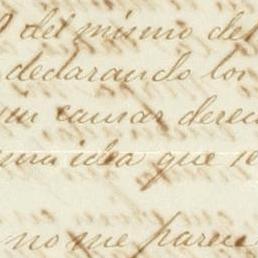 del mismo del
declarando los
un causar derec
una idea que se
no me parece